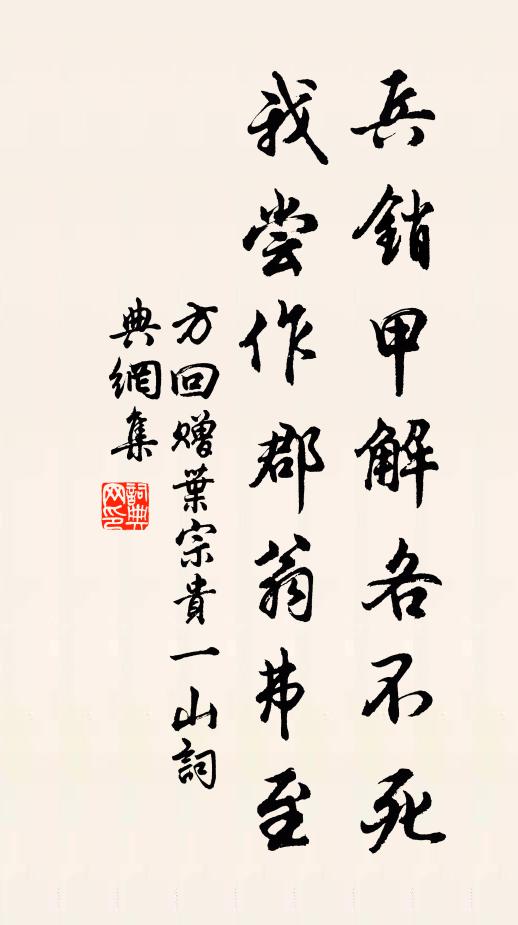 兵銷甲解各不死
我尝作郡翁弗至
方回赠葉宗貴一山詞
典網集
詞典
网印